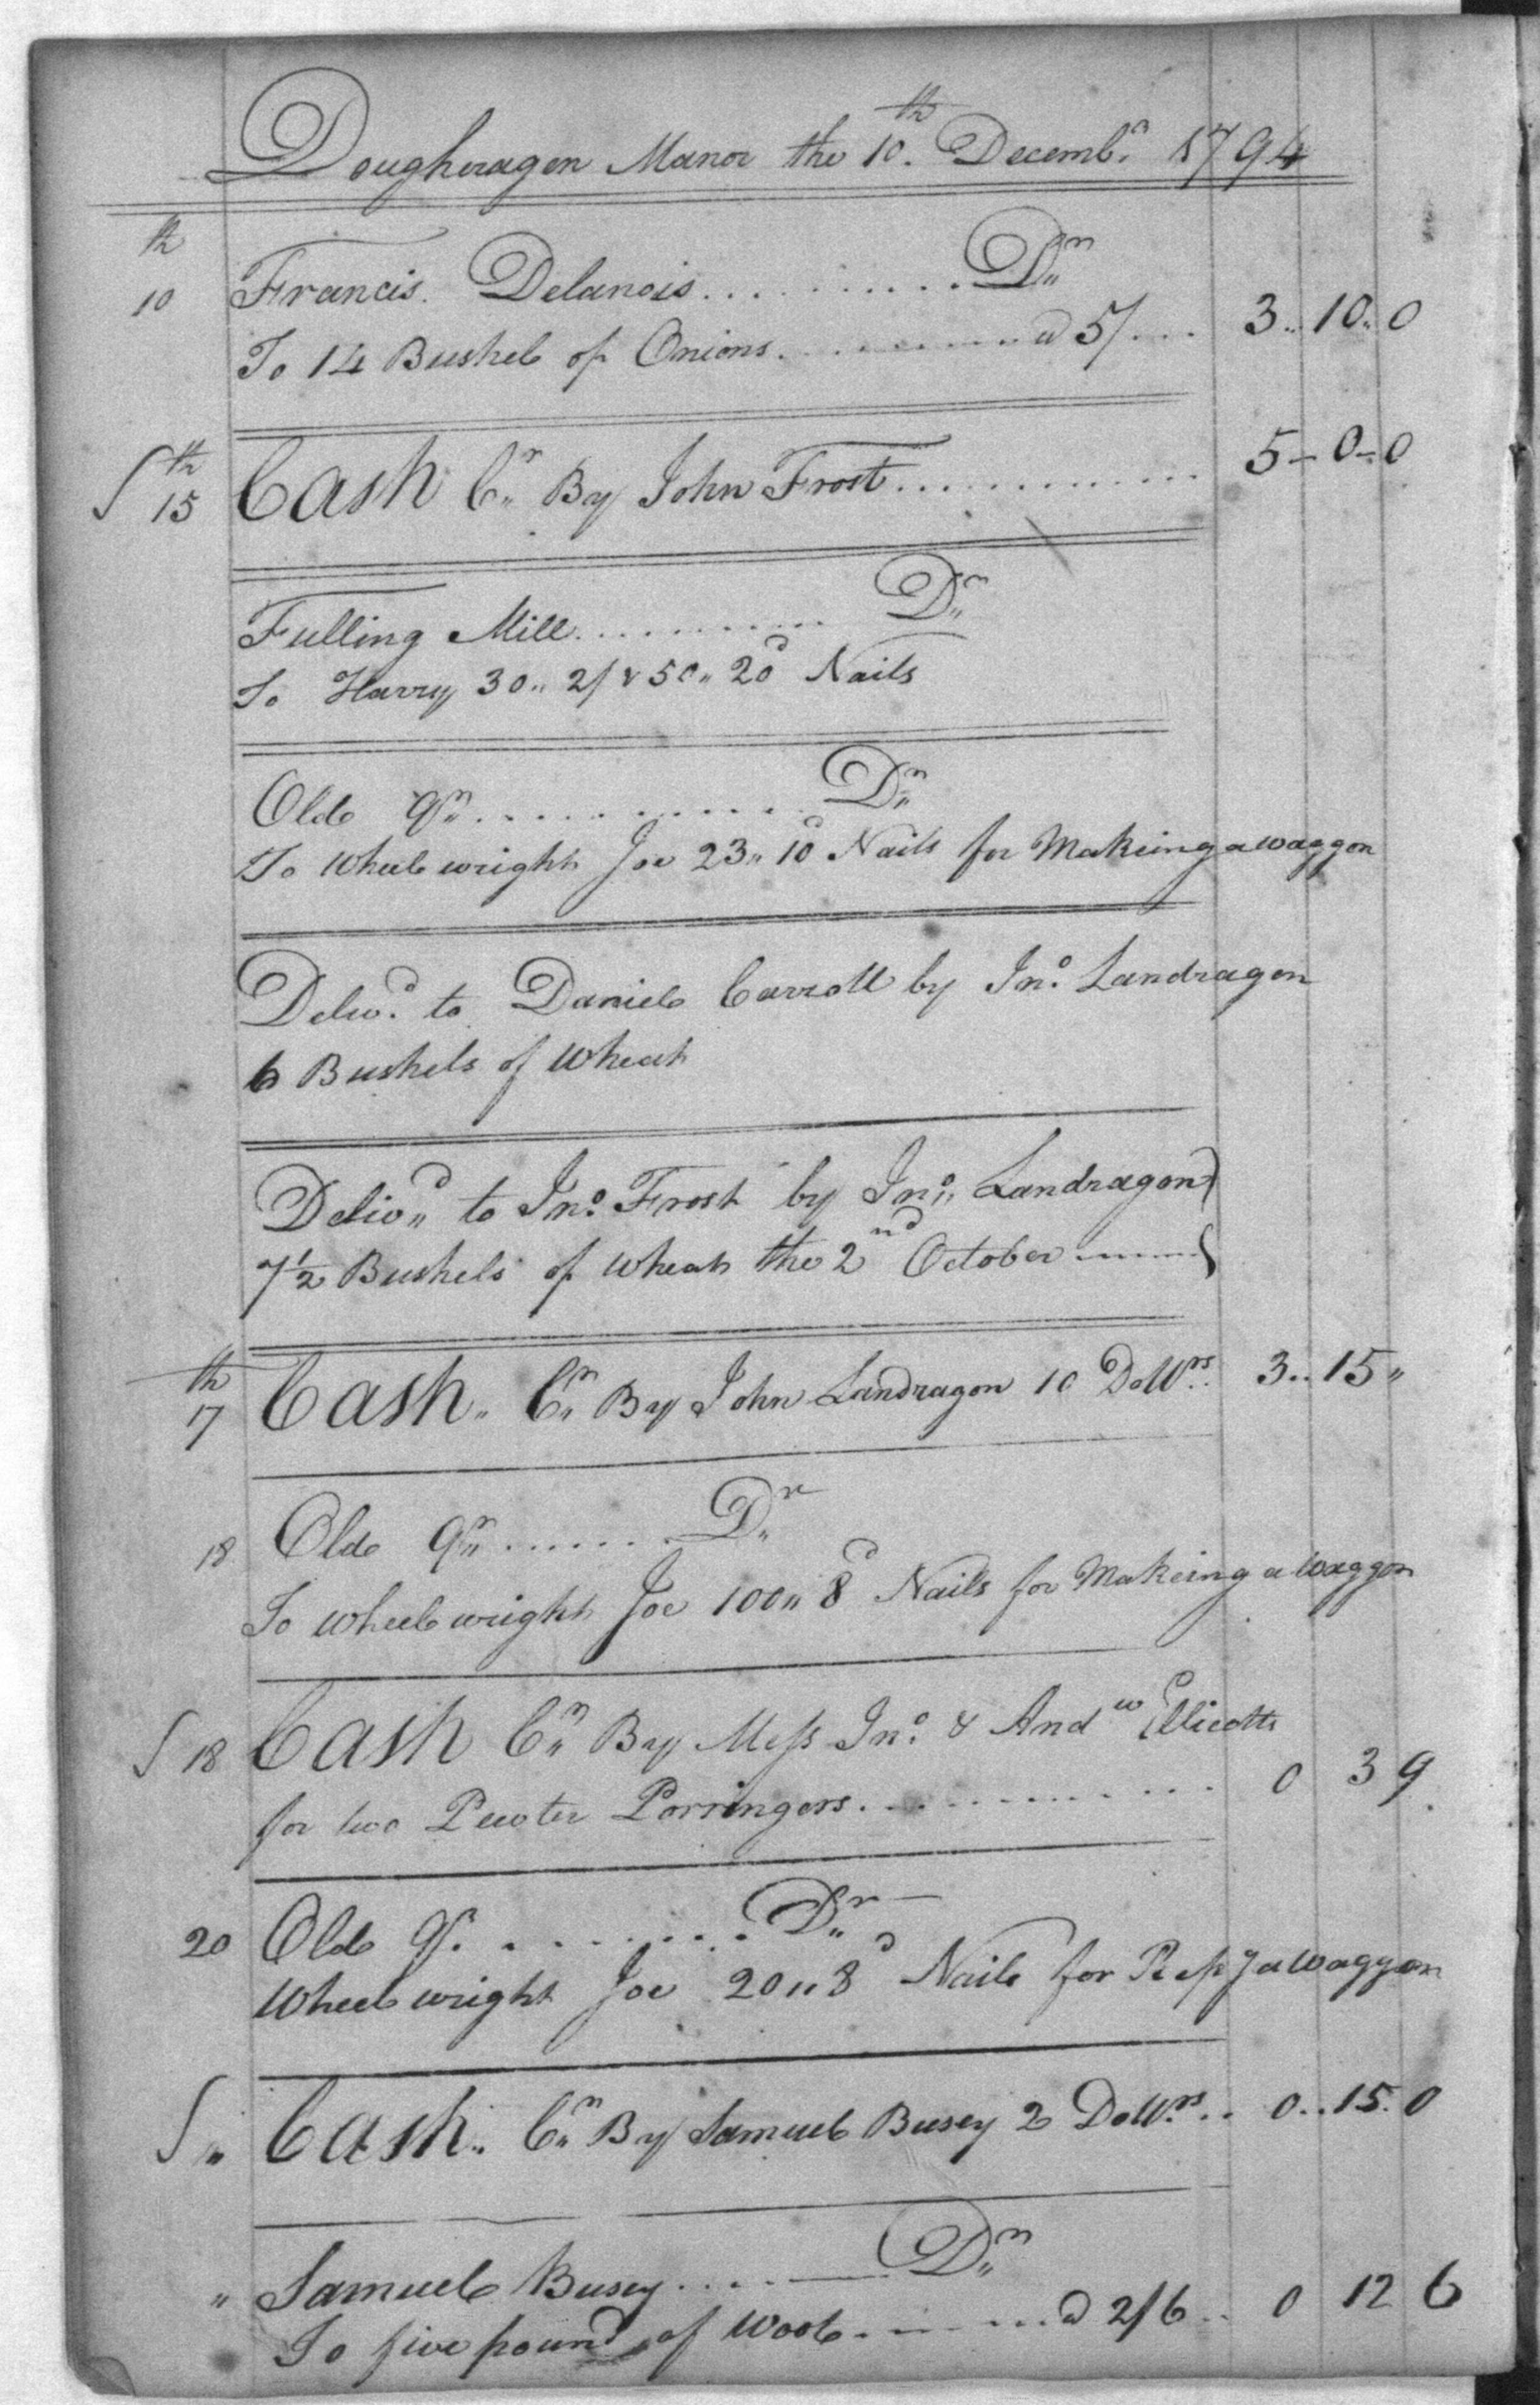 Dougheragen Manor the 10.th Decemb.r 1794
th
10 Francis. Delanois.......... Dr
To 14 Bushel of Onions............ a 5/... 3..10..0
th
15 Cash Cr By John Frost............. 5-0-0
Fulling Mill........... Dr
To Harry 30,, 2/ & 50,, 20d Nails
Olde Qr............ Dr
To Wheelewright Joe 23,, 10d Nails for Makeing a waggon
Deliv.d to Daniele Carroll by Jno. Landragen
6 Bushels of Wheat
Deliv,,d to Jno. Frost by Jno,, Landragon
7½ Bushels of Wheat the 2nd October
th
17 Cash. Cr By John Landragon 10 Dollrs. 3..15,,
18 Olde Qr....... Dr
To wheelewright Joe 100,, 8d Nails for Makeing a Waggon
18 Cash Cr By Mess Jno. & Andw Ellicotts
for two Pewter Porringers............ 0 3 9
20 Olde Qr. ........ Dr
Wheelewright Joe 20,, 8d Nails for Repg a Waggon
,, Cash.. Cr By Samuele Busey 2 Dollrs... 0..15.0
,, Samuele Busey.... Dr
To five pound of Woole........ a 2/6.. 0 12 6